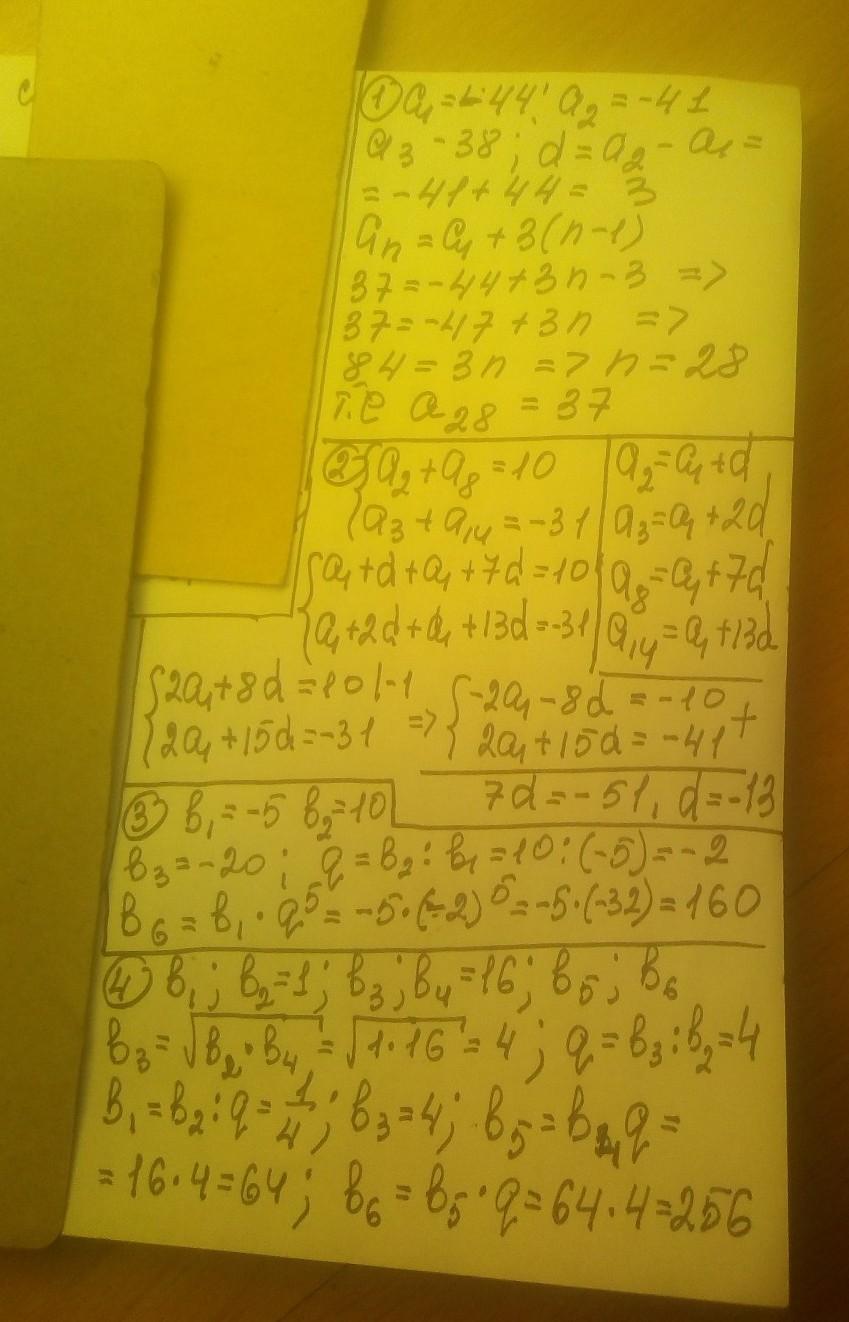 с
① a₁ = -44; a₂ = -41
a₃ -38; d = a₂ - a₁ =
= -41 + 44 = 3
aₙ = a₁ + 3(n-1)
37 = -44 + 3n - 3 =>
37 = -47 + 3n =>
84 = 3n => n = 28
т.е a₂₈ = 37
② { a₂ + a₈ = 10
{ a₃ + a₁₄ = -31
{ a₁ + d + a₁ + 7d = 10
{ a₁ + 2d + a₁ + 13d = -31
a₂ = a₁ + d
a₃ = a₁ + 2d
a₈ = a₁ + 7d
a₁₄ = a₁ + 13d
{ 2a₁ + 8d = 10 |-1
{ 2a₁ + 15d = -31
=> { -2a₁ - 8d = -10 +
{ 2a₁ + 15d = -41
7d = -51, d = -13
③ b₁ = -5 b₂ = 10
b₃ = -20; q = b₂ : b₁ = 10 : (-5) = -2
b₆ = b₁ · q⁵ = -5·(-2)⁵ = -5·(-32) = 160
④ b₁; b₂ = 1; b₃; b₄ = 16; b₅; b₆
b₃ = √b₂·b₄ = √1·16 = 4; q = b₃ : b₂ = 4
b₁ = b₂ : q = 1/4; b₃ = 4; b₅ = b₄q =
= 16·4 = 64; b₆ = b₅·q = 64·4 = 256